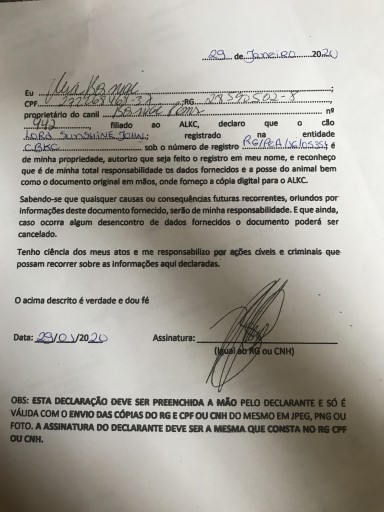 29 de Janeiro 2020
Eu
CPF ;RG
proprietário do canil nº
942, filiado ao ALKC, declaro que o cão
LORD SUNSHINE JOHN; registrado na entidade
CBKC sob o número de registro é
de minha propriedade, autorizo que seja feito o registro em meu nome, e reconheço
que é de minha total responsabilidade os dados fornecidos e a posse do animal bem
como o documento original em mãos, onde forneço a cópia digital para o ALKC.
Sabendo-se que quaisquer causas ou consequências futuras recorrentes, oriundos por
informações deste documento fornecido, serão de minha responsabilidade. E que ainda,
caso ocorra algum desencontro de dados fornecidos o documento poderá ser
cancelado.
Tenho ciência dos meus atos e me responsabilizo por ações cíveis e criminais que
possam recorrer sobre as informações aqui declaradas.
O acima descrito é verdade e dou fé
Data: 29/01/2020 Assinatura:
(Igual ao RG ou CNH)
OBS: ESTA DECLARAÇÃO DEVE SER PREENCHIDA A MÃO PELO DECLARANTE E SÓ É
VÁLIDA COM O ENVIO DAS CÓPIAS DO RG E CPF OU CNH DO MESMO EM JPEG, PNG OU
FOTO. A ASSINATURA DO DECLARANTE DEVE SER A MESMA QUE CONSTA NO RG CPF
OU CNH.